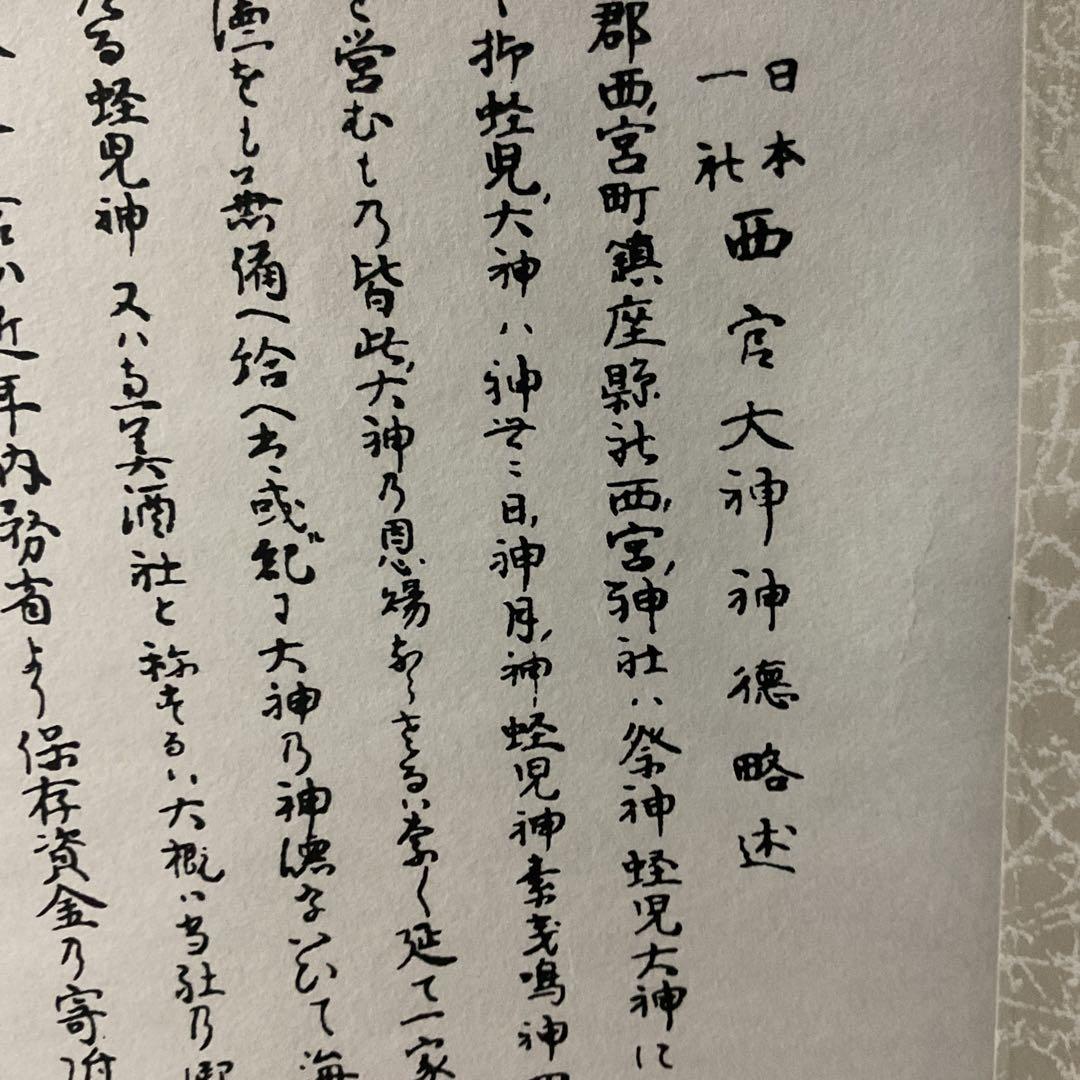 日本一社 西宮大神神徳略述
郡西宮町鎮座縣社西宮神社ハ祭神蛭児大神に
抑蛭児大神ハ神世ニ日神月神蛭児神素戔嗚神
営むもの皆此大神乃恩賜ならさるハ無く延て一家
をも無備へ給へ 紀に大神乃神徳を て海
る蛭児神 又ハ恵美酒社と称するハ大概ハ当社乃
近年内務省より保存資金乃寄附